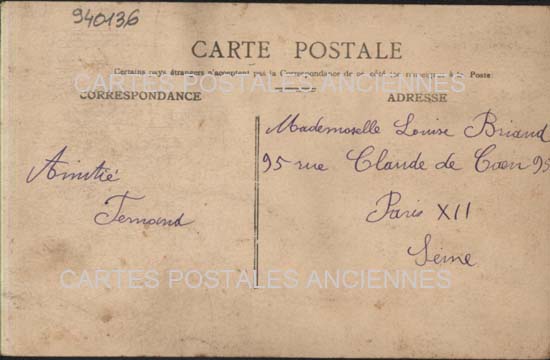 940136
CARTE POSTALE
Certains pays étrangers n'acceptent pas la Correspondance de ce côté (se renseigner à la Poste)
CARTES POSTALES ANCIENNES
CORRESPONDANCE
ADRESSE
Mademoselle Louise Briand
95 rue Claude de Caen 95
Paris XII
Seine
Amitié
Fernand
CARTES POSTALES ANCIENNES